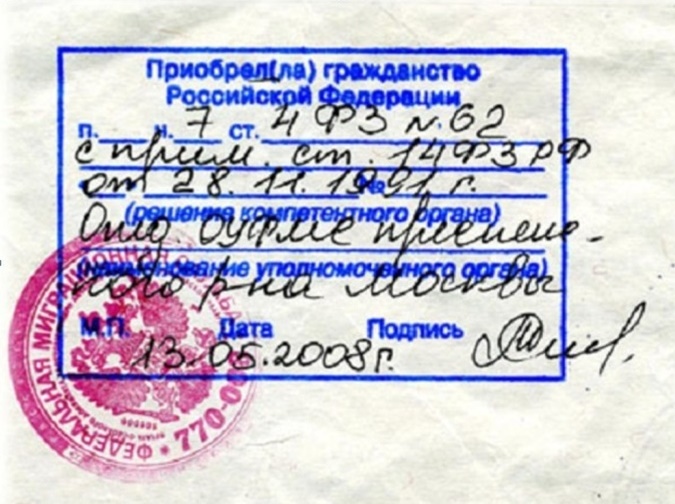 Приобрел(ла) гражданство
Российской Федерации
п. ч. 7 ст. 4 ФЗ № 62
с прим. ст. 14 ФЗ РФ
от 28.11.1991 г. №
(решение компетентного органа)
(наименование уполномоченного органа)
го р-на Москвы
М.П. Дата Подпись
13.05.2008 г.
ФЕДЕРАЛЬНАЯ МИГРАЦИОННАЯ
770-0